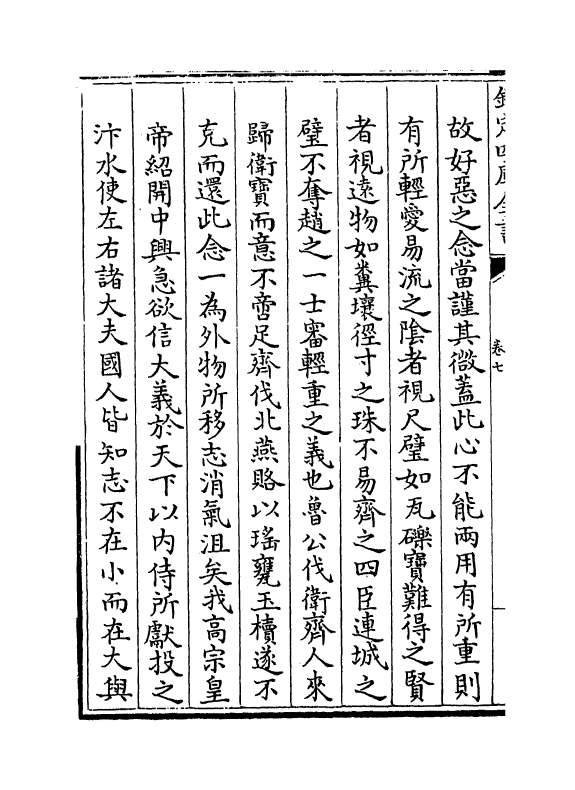 欽定四庫全書
卷七
故好惡之念當謹其微蓋此心不能兩用有所重則
有所輕愛易流之陰者視尺璧如瓦礫寶難得之賢
者視遠物如糞壤徑寸之珠不易齊之四臣連城之
璧不奪趙之一士審輕重之義也魯公伐衛齊人來
歸衛寶而意不啻足齊伐北燕賂以瑤甕玉櫝遂不
克而還此念一為外物所移志消氣沮矣我高宗皇
帝紹開中興急欲信大義於天下以内侍所獻投之
汴水使左右諸大夫國人皆知志不在小而在大與